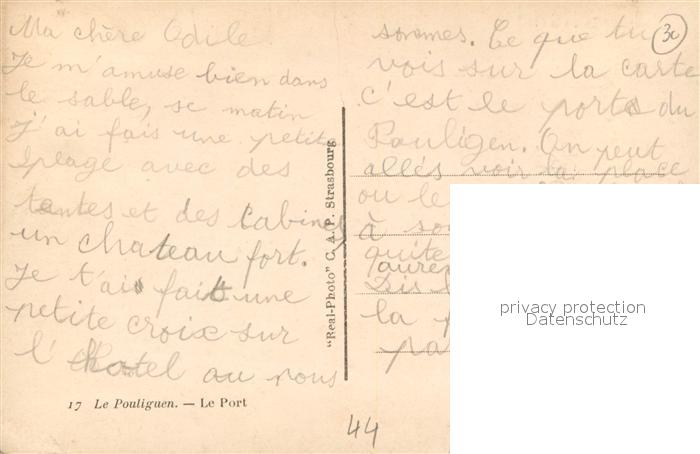 Ma chère Odile
Je m'amuse bien dans
le sable, se matin
j'ai fais une petite
plage avec des
tentes et des cabines
un chateau fort.
Je t'ais fait une
petite croix sur
l'hotel ou nous
sommes. Ce que tu
vois sur la carte
c'est le port du
Pouligen. On peut
allés voir la place
ou le
à
quite
Dis
la
pa
30
"Real-Photo" C. A. P. Strasbourg
17 Le Pouliguen. — Le Port
44
privacy protection
Datenschutz